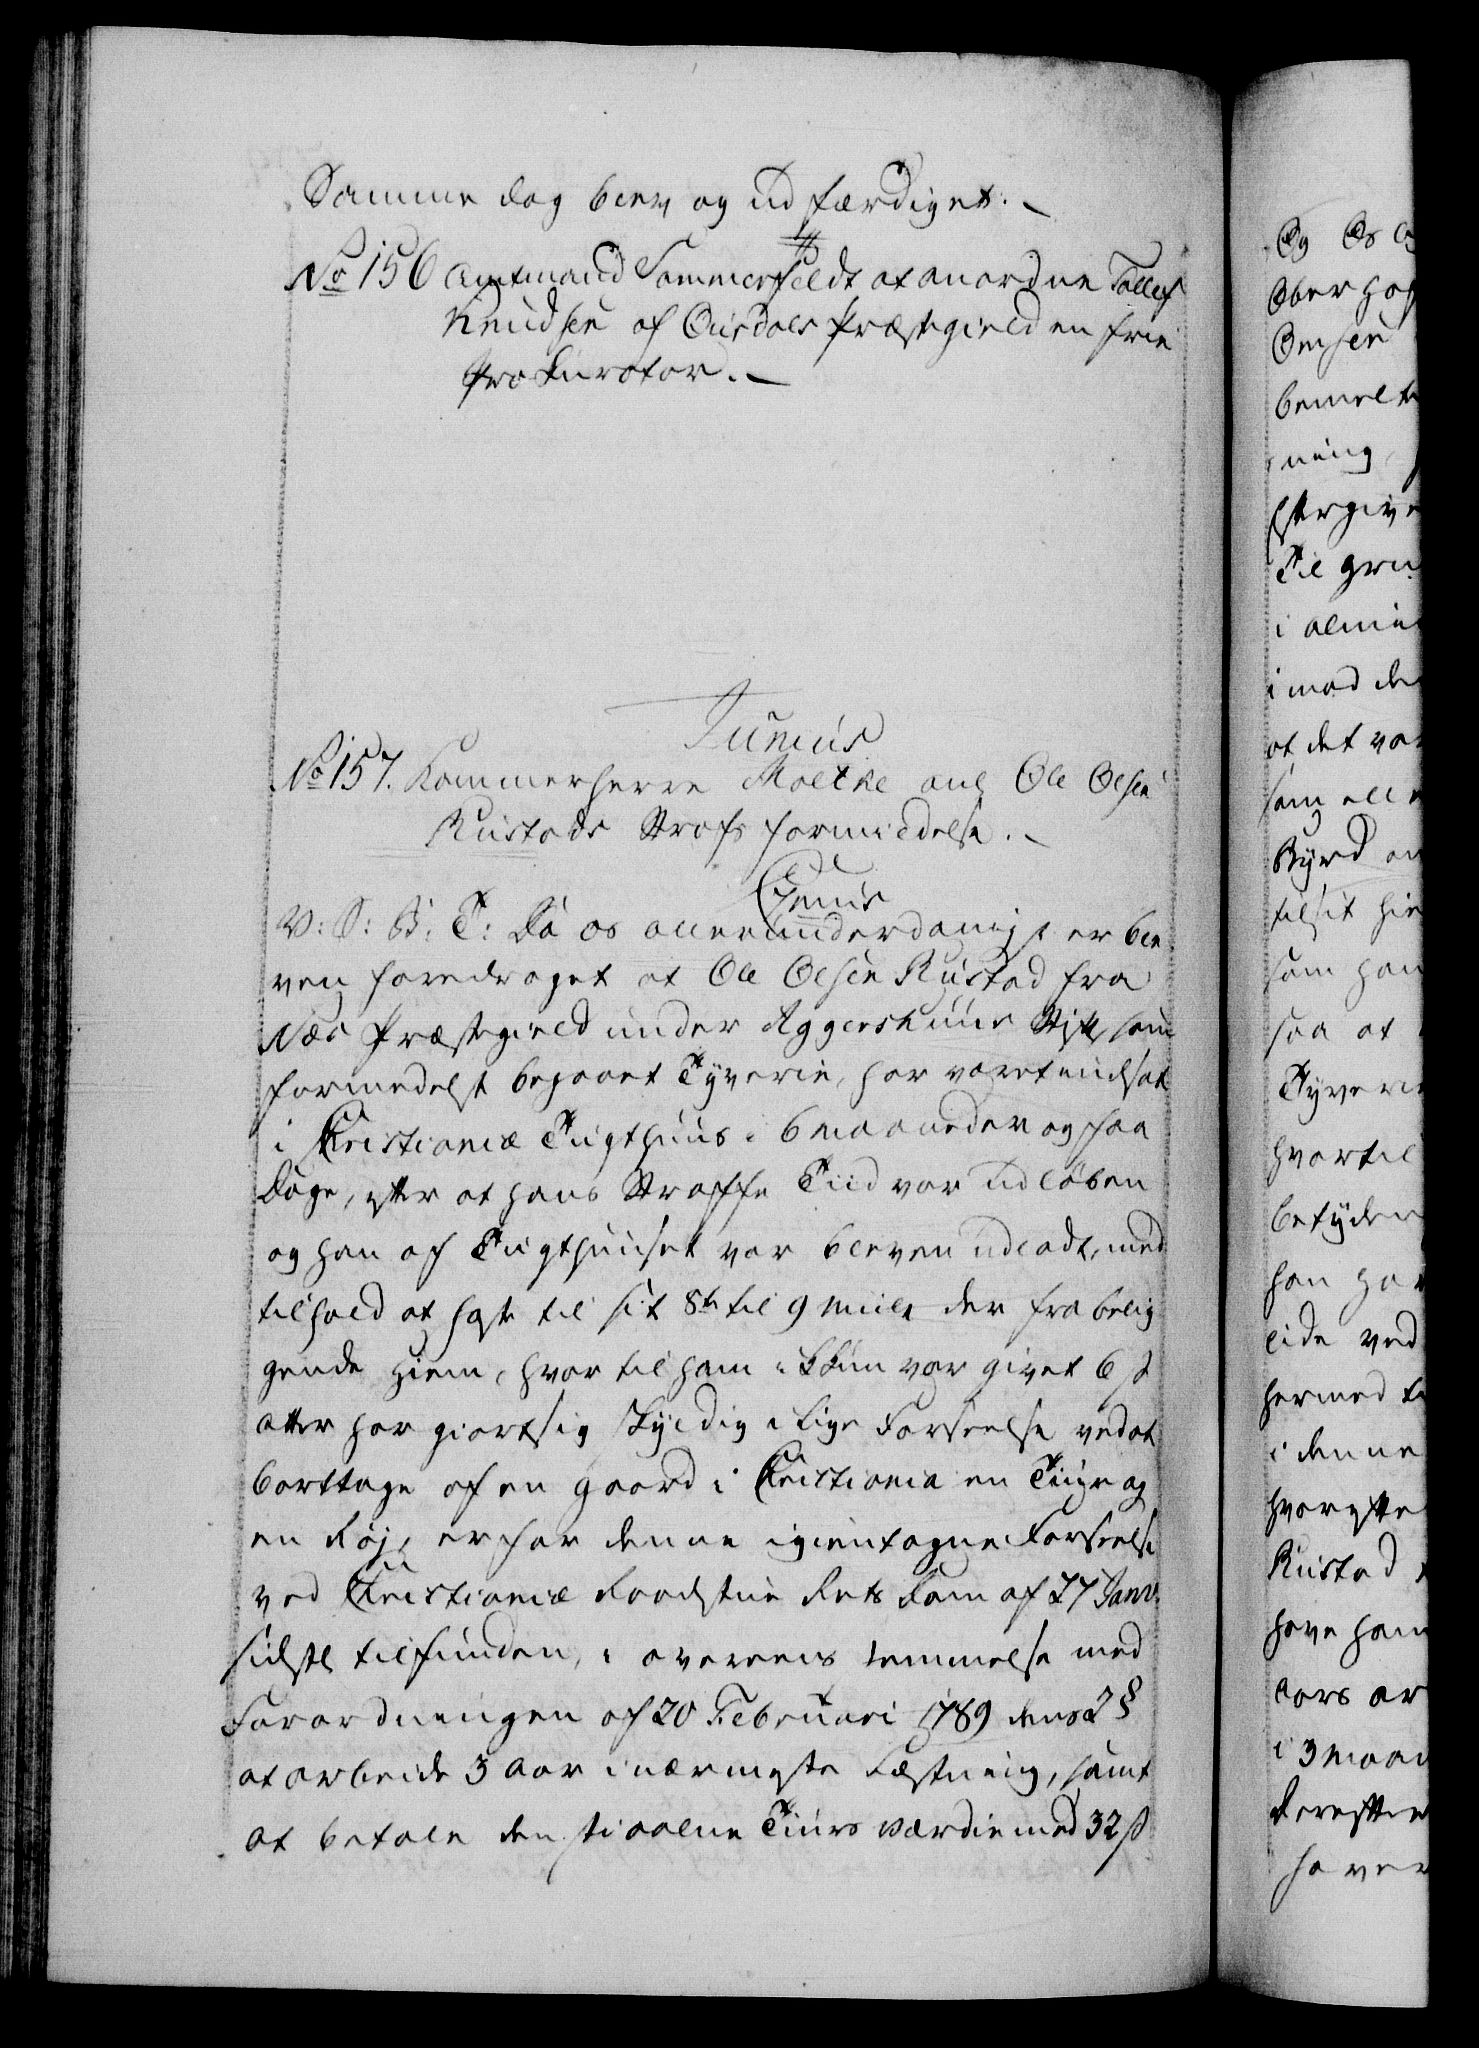 Samme dag blev og udfærdiget. —
No 156 Amtmand Sommerfeldt at anordne Tollef
Knudsen af Ourdals Præstegield en frie
Prokurator. —
Junius
No 157. Kammerherre Moltke ang Ole Olsen
Rustads Strafs formildelse. —
V: S: G: T: Da os allerunderdanigst er ble
ven foredraget at Ole Olsen Rustad fra
Næs Præstegield under Aggershuus Stift, som
formedelst begaaet Tyverie, har været indsat
i Christianiæ Tugthuus i 6 maaneder og faa
Dage, efter at hans Straffe Tiid var udløben
og han af Tugthuuset var bleven udladt, med
tilhold at haste til sit 8te til 9 Miile der fra belig
gende Hiem, hvor til ham ikkun var givet 6 ß
atter har giort sig skyldig i lige Forseelse ved at
borttage af en gaard i Christiania en Tiur og
en Røj, er for denne igientagne Forseelse
ved Christianiæ Raadstue Rets Dom af 27 Janv.
sidstl tilfunden, i overeens temmelse med
Forordningen af 20 Februari 1789 dens 2 §
at arbeide 3 Aar i nærmeste Fæstning, samt
at betale den stiaalne Tiurs Værdie med 32 ß
Og Os
Ober Hof
Omsen
bemelte
ning,
Eftergive
Til gru
i almin
imod de
at det var
som alle
Byrd
tilsit
som han
saa at
Tyverie
hvortil
betyden
han har
lide ved
hermed
i denne
hvorefte
Rustad
have ham
aars ar
i 3 maan
derefter
haver